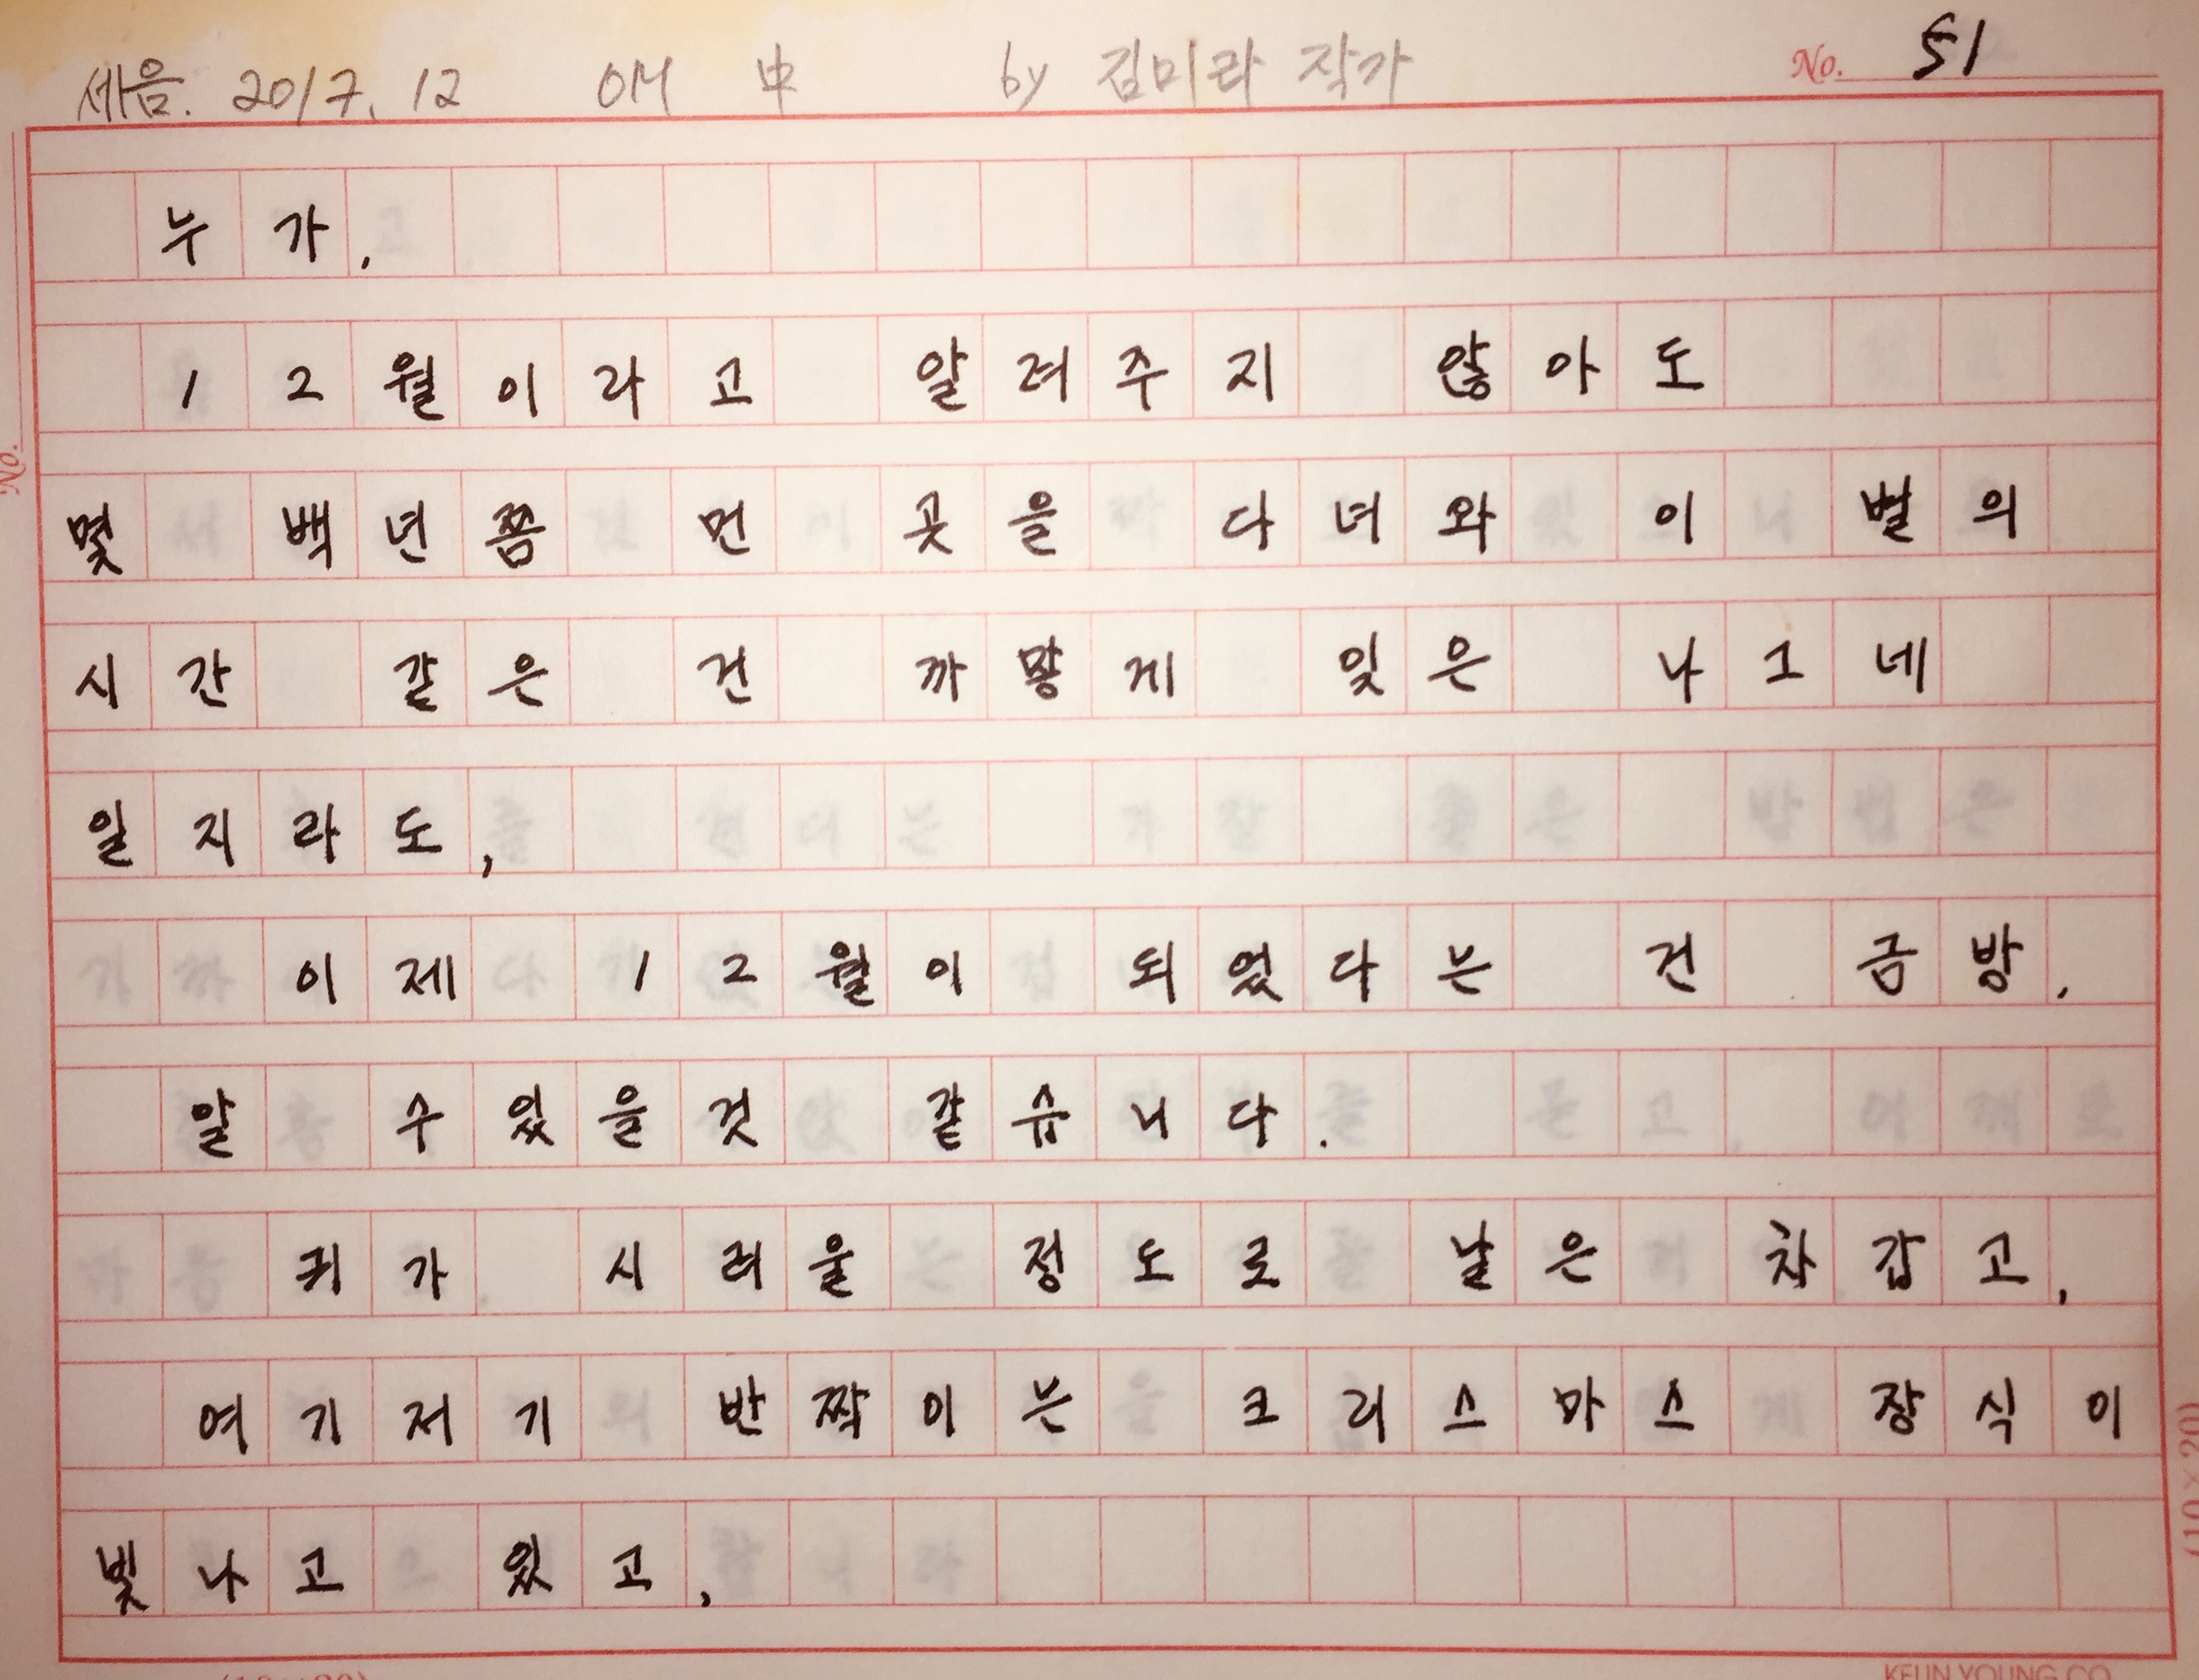 세음. 2017. 12 OM 中 by 김미라 작가 No. 51
누가,
12월이라고 알려주지 않아도
몇 백년쯤 먼 곳을 다녀와 이 별의
시간 같은 건 까맣게 잊은 나그네
일지라도,
이제 12월이 되었다는 건 금방.
알 수있을것 같습니다.
귀가 시려울 정도로 날은 차갑고,
여기저기 반짝이는 크리스마스 장식이
빛나고 있고,
No.
(10×20)
KEUN YOUNG CO.